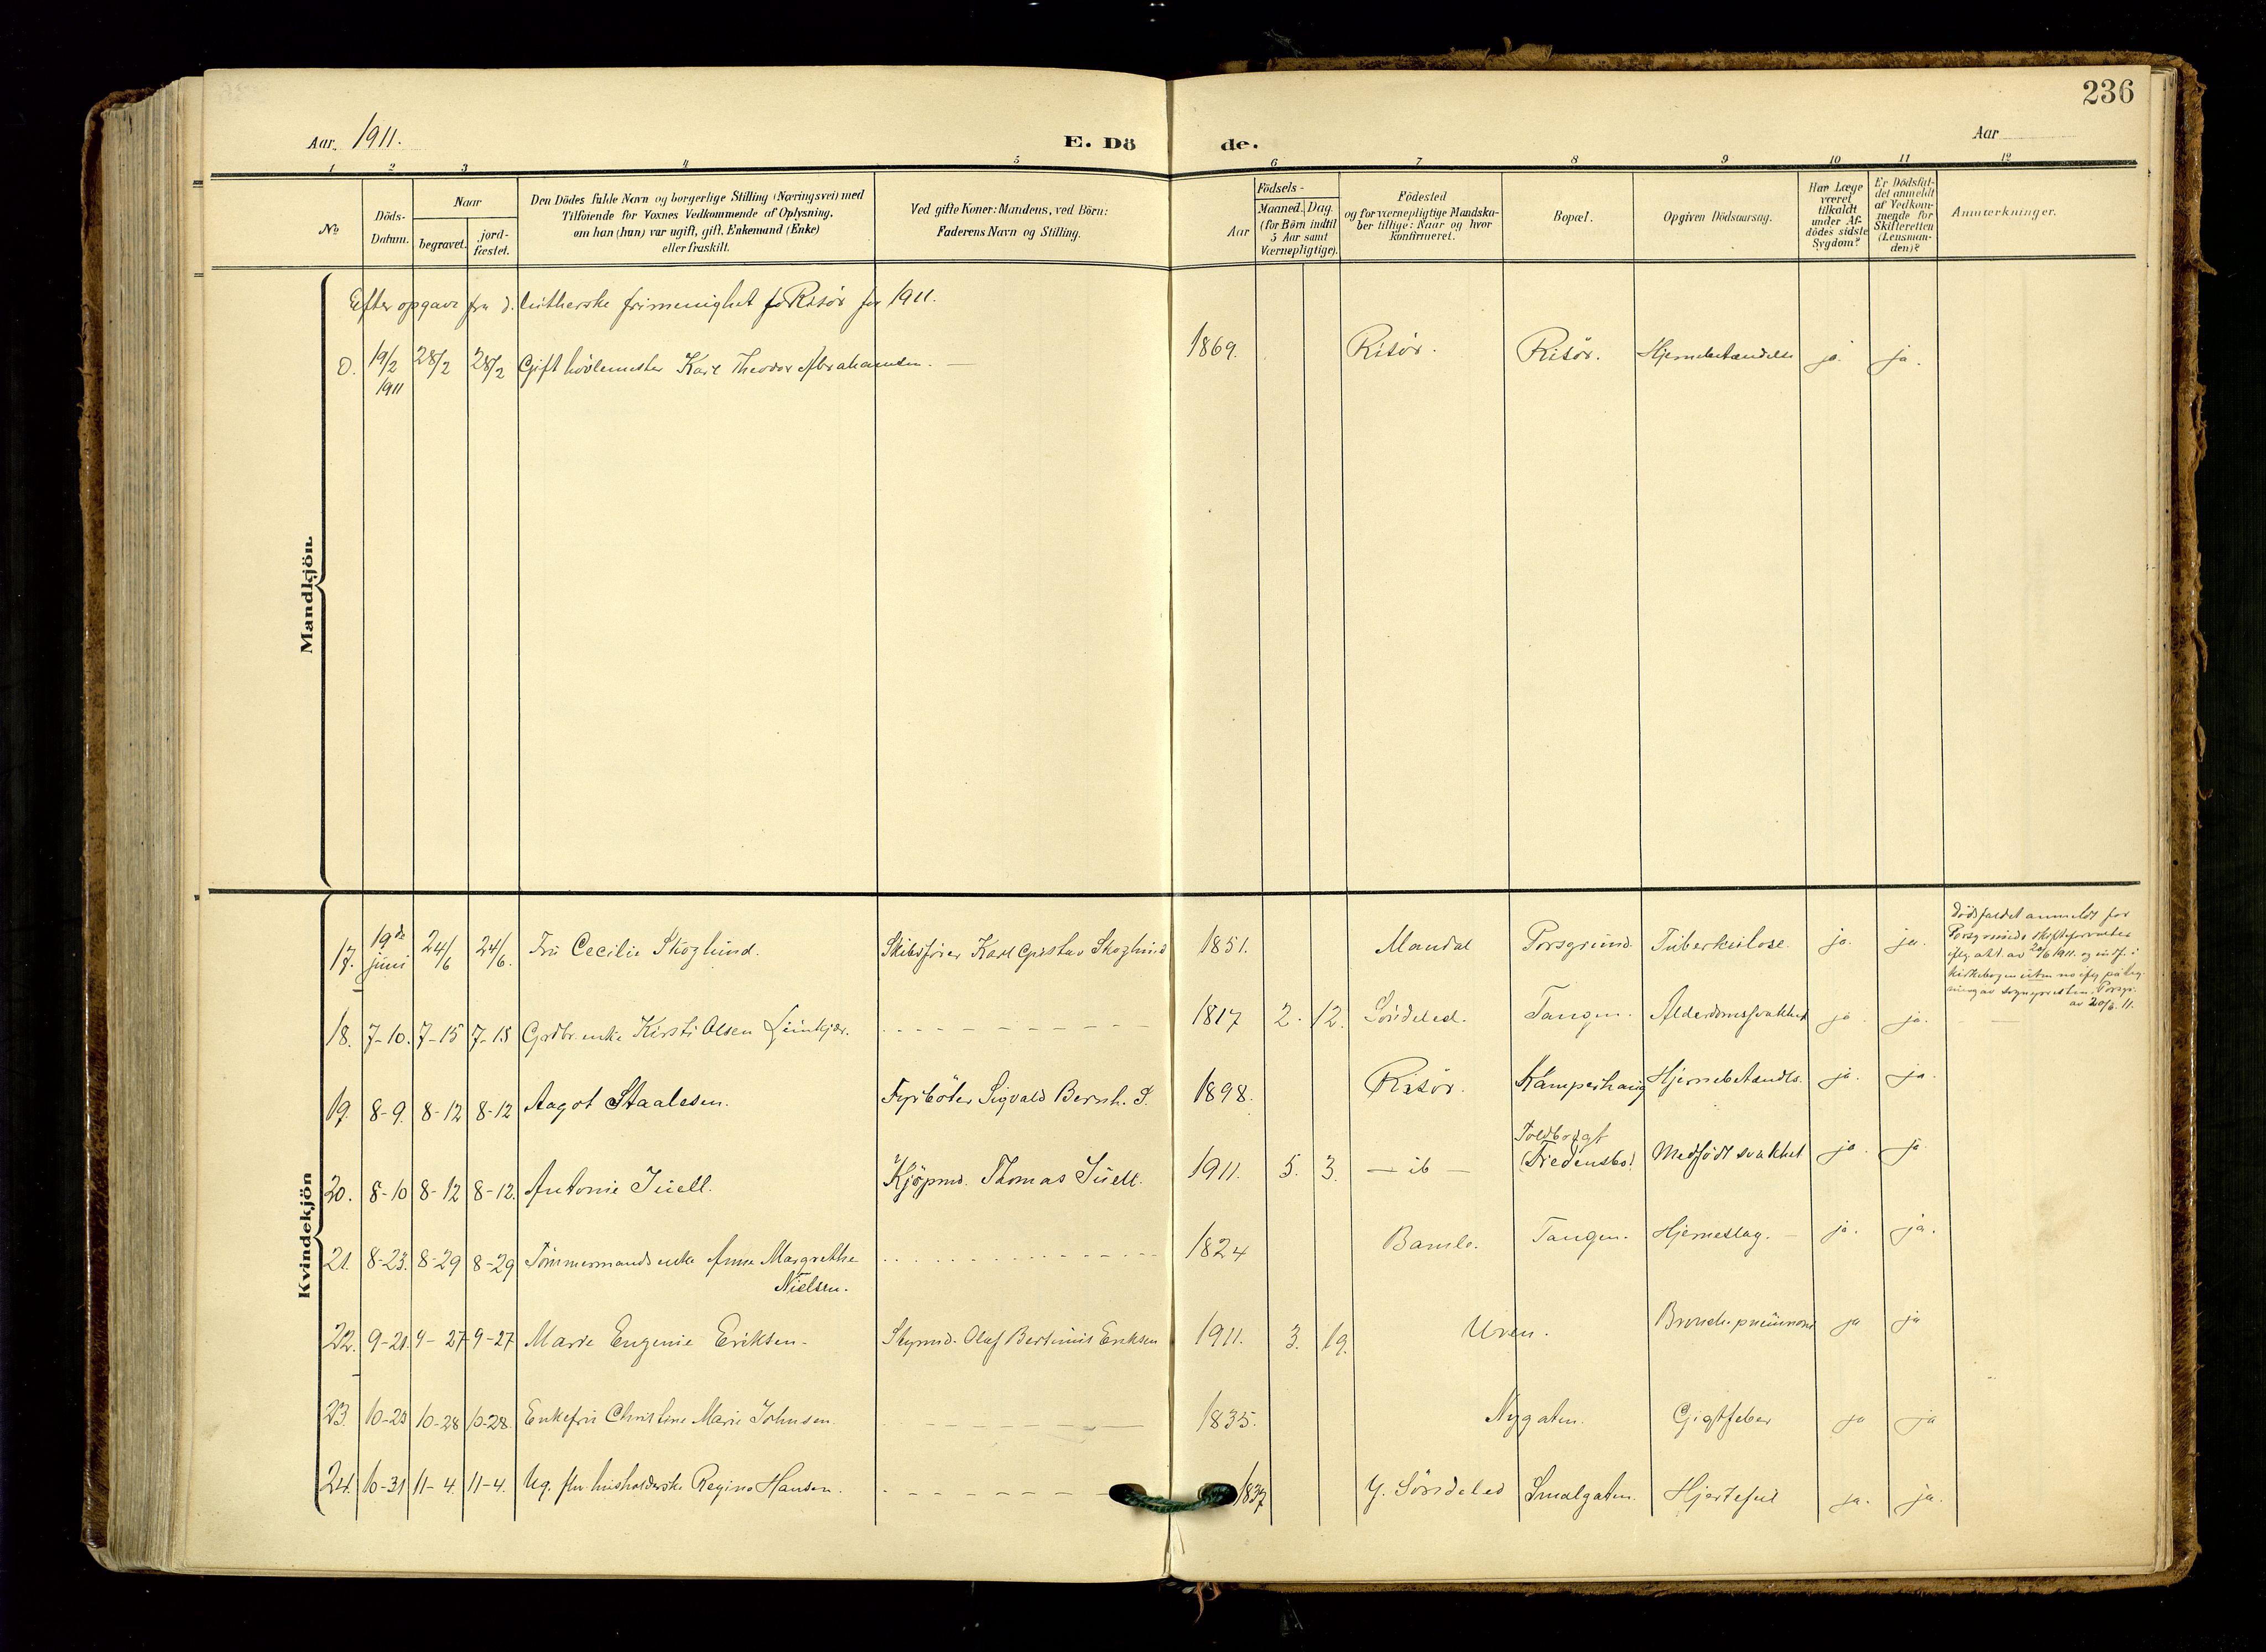 236
Aar. 1911.
E. Dö
de.
Aar
1 2 3 4 5 6 7 8 9 10 11 12
№
Döds-Datum.
Naar
begravet.
jord-fæstet.
Den Dödes fulde Navn og borgerlige Stilling (Næringsvei) med
Tilföiende for Voxnes Vedkommende af Oplysning,
om han (hun) var ugift, gift, Enkemand (Enke)
eller fraskilt.
Ved gifte Koner: Mandens, ved Börn:
Faderens Navn og Stilling.
Aar
Födsels-
Maaned. Dag.
(for Börn indtil
5 Aar samt
Værnepligtige).
Födested
og for værnepligtige Mandska-
ber tillige: Naar og hvor
konfirmeret.
Bopæl.
Opgiven Dödsaarsag.
Har Læge
været
tilkaldt
under Af-
dödes sidste
Sygdom?
Er Dödsfal-
det anmeldt
af Vedkom-
mende for
Skifteretten
(Lensman-
den)?
Anmærkninger.
Mandkjön.
Efter opgave fra d. lutherske frimenighet for Risör for 1911.
D. 19/2 1911 28/2 28/2 Gift hövlemester Karl Theodor Abrahamsen. — 1869. Risör. Risör. Hjernebetændelse ja. ja.
Kvindekjön
17. 19de juni 24/6 24/6. Fru Cecilie Skoglund. Skibsförer Karl Gustav Skoglund 1851. Mandal Porsgrund. Tuberkulose. ja. ja. Dödsfaldet anmeldt for
Porsgrunds skifteforvalter
iflg. akt. av 20/6 1911. og indf. i
kirkebogen uten no iflg påteg-
ning av sogneprest Porsgr.
av 20/6. 11.
18. 7-10. 7-15 7-15 Grdbr. enke Kirsti Olsen Lunkjær. - - - 1817 2. 12. Söndeled. Tangen. Alderdomssvakhet ja ja.
19. 8-9. 8-12 8-12 Aagot Staalesen. Fyrböter Sigvald Bernh. S. 1898. Risör. Kamperhaug Hjernebetændls. ja. ja.
20. 8-10 8-12 8-12. Antonie Juell. Kjöpmd. Thomas Juell. 1911. 5. 3. — ib — Toldbodgt
(Fredensbo) Medfödt svakhet ja. ja
21. 8-23. 8-29 8-29 Tömmermands enke Anne Margrethe
Nielsen. - - - 1824 Bamle. Tangen. Hjerneslag. — ja. ja.
22. 9-21. 9-27 9-27 Marie Eugenie Eriksen. Styrmd. Olaf Bertinius Eriksen 1911. 3. 19. Uren. Bronch. pneumoni ja ja
23. 10-23 10-28 10-28. Enkefru Christine Marie Johnsen. - - - 1835. Nygaten. Gigtfeber ja ja
24. 10-31 11-4. 11-4. Ug. fhv. husholderske Regine Hansen. - - - 1837 Y. Söndeled Smalgaten. Hjertefeil ja. ja.